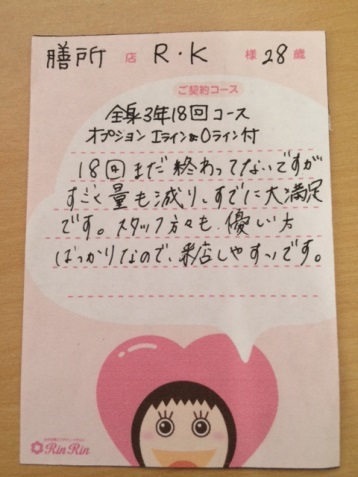 膳所 店 R・K 様 28 歳
ご契約コース
全身3年18回コース
オプション Iライン&Oライン付
18回まだ終わってないですが
すごく量も減り、すでに大満足
です。スタッフ方々も、優しい方
ばっかりなので、来店しやすいです。
RinRin